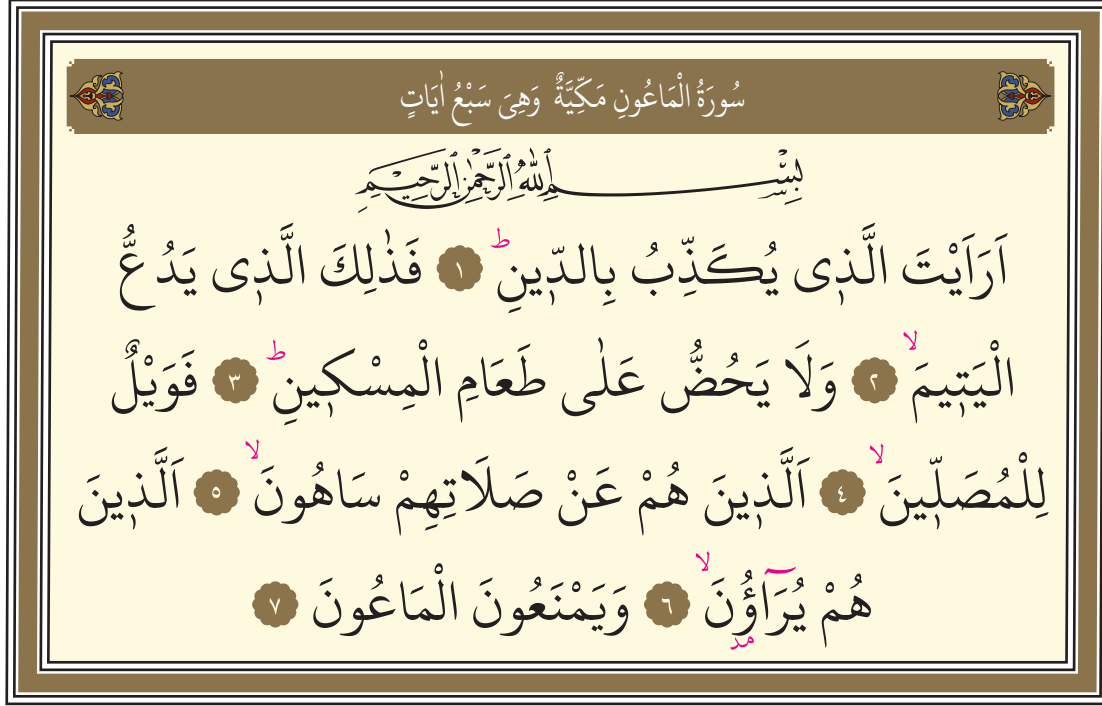 سُورَةُ الْمَاعُونِ مَكِّيَّةٌ وَهِيَ سَبْعُ اٰيَاتٍ
بِسْمِ اللّٰهِ الرَّحْمٰنِ الرَّحِيمِ
اَرَاَيْتَ الَّذ۪ى يُكَذِّبُ بِالدّ۪ينِۜ ﴿١﴾ فَذٰلِكَ الَّذ۪ى يَدُعُّ
الْيَت۪يمَۙ ﴿٢﴾ وَلَا يَحُضُّ عَلٰى طَعَامِ الْمِسْك۪ينِۜ ﴿٣﴾ فَوَيْلٌ
لِلْمُصَلّ۪ينَۙ ﴿٤﴾ اَلَّذ۪ينَ هُمْ عَنْ صَلَاتِهِمْ سَاهُونَۙ ﴿٥﴾ اَلَّذ۪ينَ
هُمْ يُرَٓاؤُ۫نَۙ ﴿٦﴾ وَيَمْنَعُونَ الْمَاعُونَ ﴿٧﴾
مد